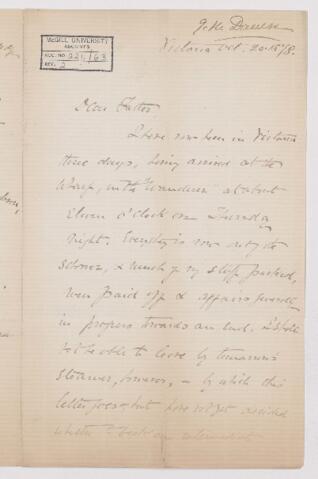 McGILL UNIVERSITY
ARCHIVES
ACC. NO.
REF. 2
G. M. Dawson
Victoria Oct. 20. 1878.
Dear Father
I have now been in Victoria
three days, having arrived at the
Wharf, in the "Wanderer" at about
Eleven O'Clock on Thursday
Night. Everything is now out of the
schooner, & much of my stuff packed,
men paid off & affairs generally
in progress towards an end. I shall
not be able to leave by tomorrow's
steamer, however, — by which this
letter goes — but have not yet decided
whether to